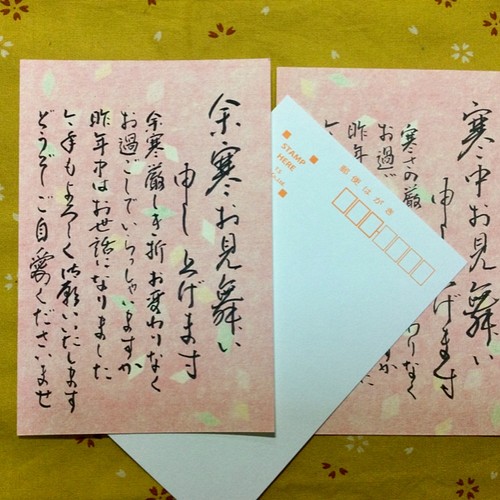 余寒お見舞い
申し上げます
余寒厳しき折 お変わりなく
お過ごしでいらっしゃいますか
昨年中はお世話になりました
今年もよろしくお願いいたします
どうぞご自愛くださいませ
STAMP
HERE
郵便はがき
寒中お見舞い
申し
げます
寒さの厳
お過ご
昨年
わりなく
すか
た